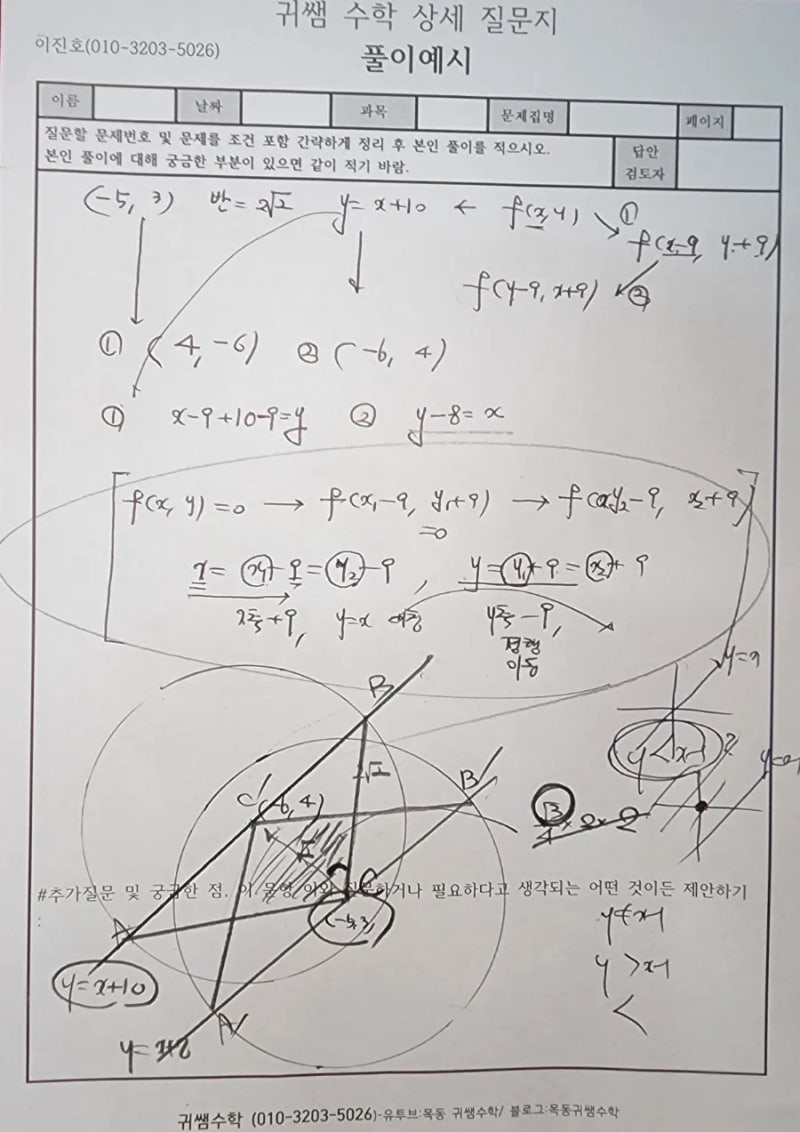 귀쌤 수학 상세 질문지
이진호(010-3203-5026)
풀이예시
이름 날짜 과목 문제집명 페이지
질문할 문제번호 및 문제를 조건 포함 간략하게 정리 후 본인 풀이를 적으시오.
본인 풀이에 대해 궁금한 부분이 있으면 같이 적기 바람.
답안
검토자
(-5, 3) 반=2√2 y=x+10 ← f(x,y) ①
f(x-9, y+9)
f(y-9, x+9) ②
① (4, -6) ② (-6, 4)
① x-9+10-9=y ② y-8=x
f(x, y)=0 → f(x₁-9, y₁+9) → f(y₂-9, x₂+9)
=0
x = x₁-9 = y₂-9 , y = y₁+9 = x₂+9
x축+9, y=x 대칭 y축-9,
평행
이동
y=x
B
y<x-1 ?
2√2
B'
C'(-6, 4)
√3/4 × 2 × 2
√2
C
#추가질문 및 궁금한 점. 이 문항 이외 질문하거나 필요하다고 생각되는 어떤 것이든 제안하기
:
(-5,3)
A
y=x+10
y≠x-1
y>x-1
<
A'
y=x+8
귀쌤수학 (010-3203-5026)-유투브:목동 귀쌤수학/ 블로그:목동귀쌤수학